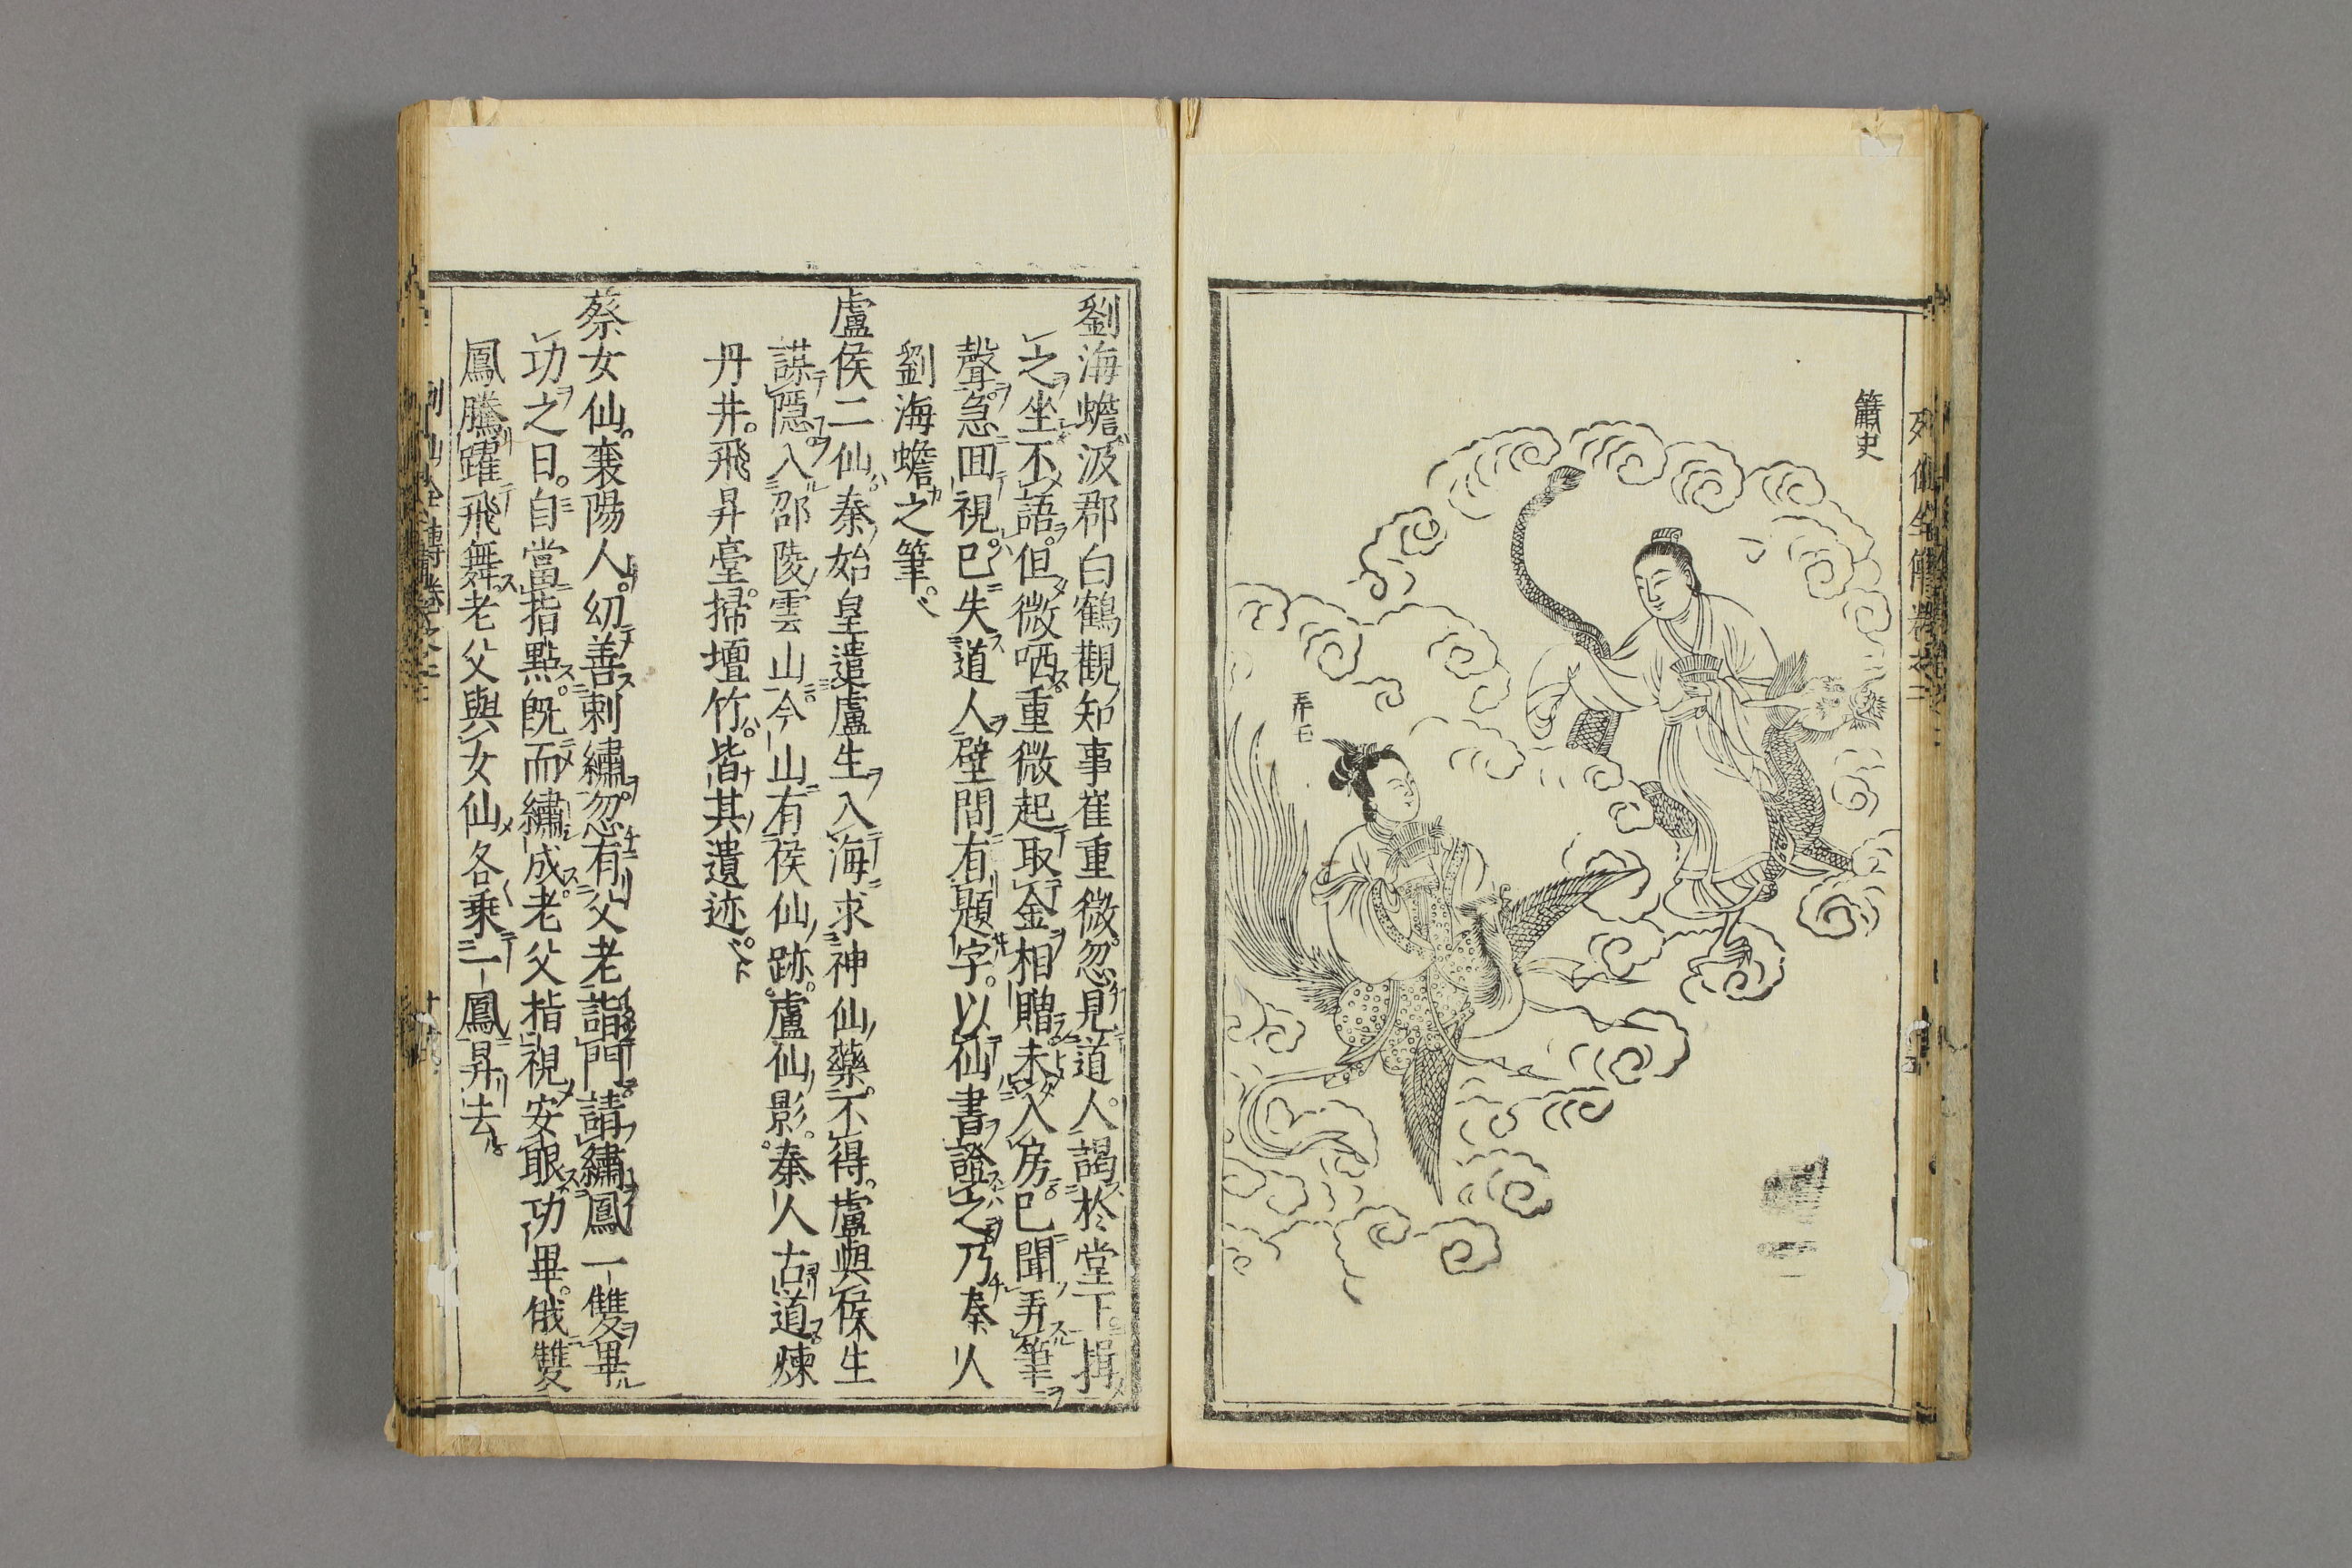 簫史
弄玉
劉海蟾。汲郡白鶴觀知事崔重微。忽見道人。謁於堂下。揖
之坐。不語。但微哂。重微起取金相贈。未入房。已聞弄筆
聲。急囬視。已失道人。壁間有題字。以仙書證之。乃秦人
劉海蟾之筆。
盧侯二仙。秦始皇遣盧生入海求神仙藥。不得。盧與侯生
謀隱入邵陵雲山。今山有侯仙跡。盧仙影。秦人古道。煉
丹井。飛昇臺。掃壇竹。皆其遺迹。
蔡女仙。襄陽人。幼善刺繡。忽有父老詣門。請繡鳳一雙。畢
功之日。自當指點。既而繡成。老父指視安眼。功畢。俄雙
鳳騰躍飛舞。老父與女仙各乘一鳳昇去。